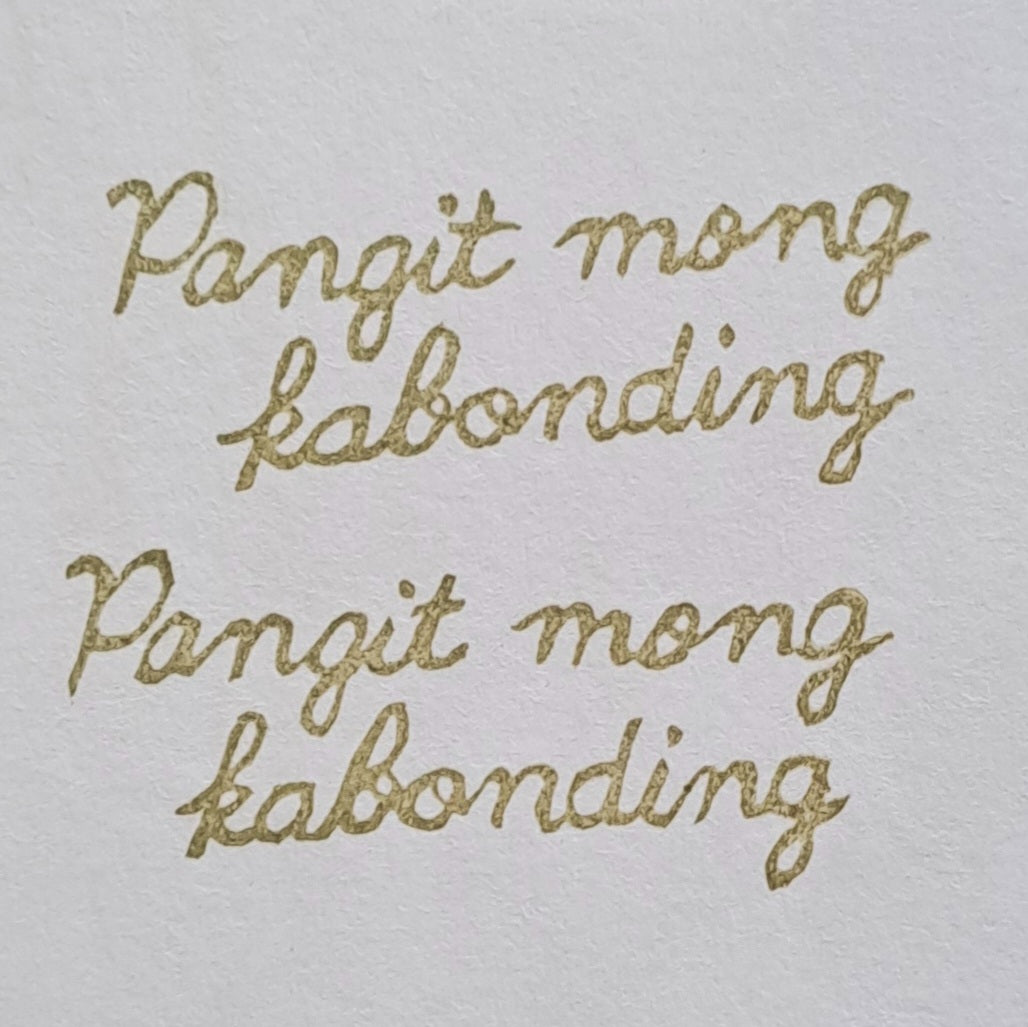 Pangit mong
kabonding
Pangit mong
kabonding